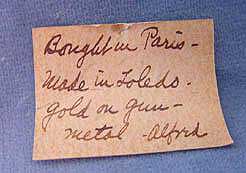 Bought in Paris -
Made in Toledo -
gold on gun -
metal - Alfred